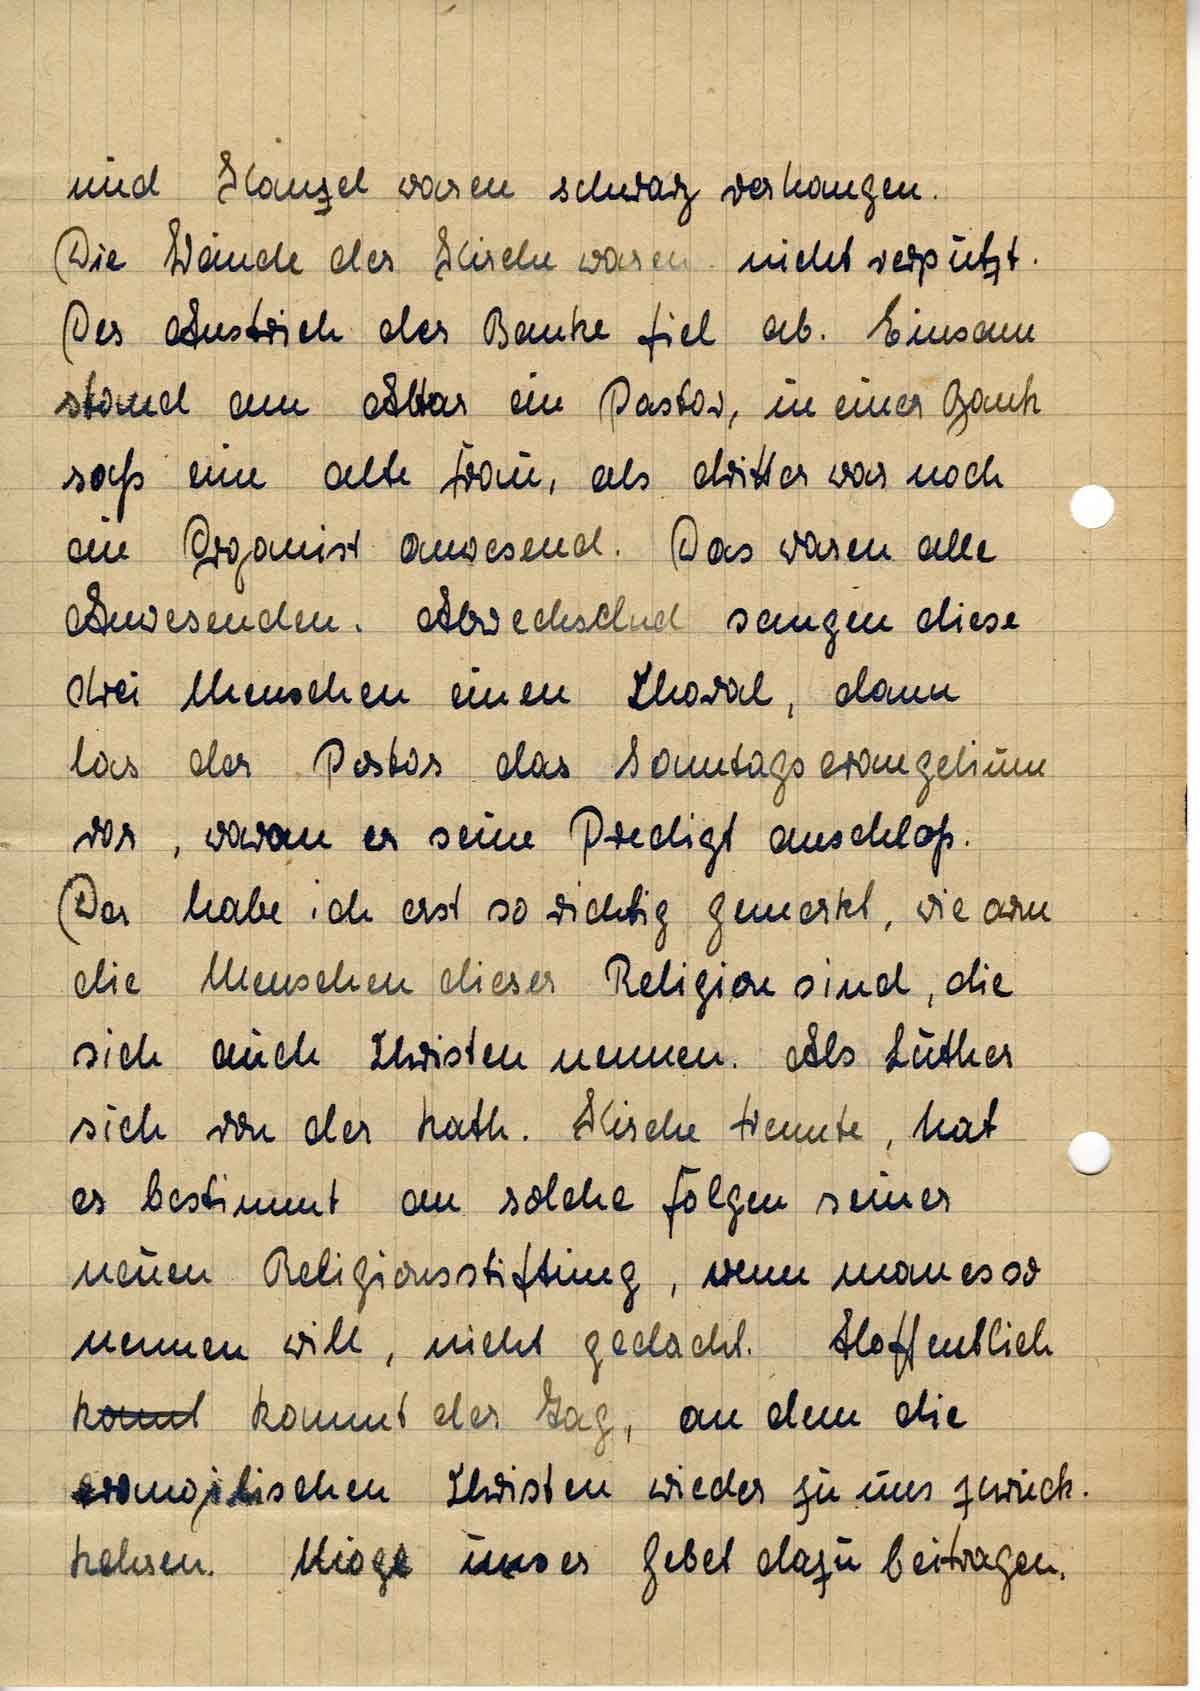 und Kanzel waren schwarz verhangen.
Die Wände der Kirche waren nicht verputzt.
Der Anstrich der Bänke fiel ab. Einsam
stand am Altar ein Pastor, in einer Bank
saß eine alte Frau, als dritter war noch
ein Organist anwesend. Das waren alle
Anwesenden. Abwechselnd sangen diese
drei Menschen einen Choral, dann
las der Pastor das Sonntagsevangelium
vor, woran er seine Predigt anschloß.
Da habe ich erst so richtig gemerkt, wie arm
die Menschen dieser Religion sind, die
sich auch Christen nennen. Als Luther
sich von der kath. Kirche trennte, hat
er bestimmt an solche Folgen seiner
neuen Religionsstiftung, wenn man es so
nennen will, nicht gedacht. Hoffentlich
kommt der Tag, an dem die
evangelischen Christen wieder zu uns zurück-
kehren. Möge unser Gebet dazu beitragen.